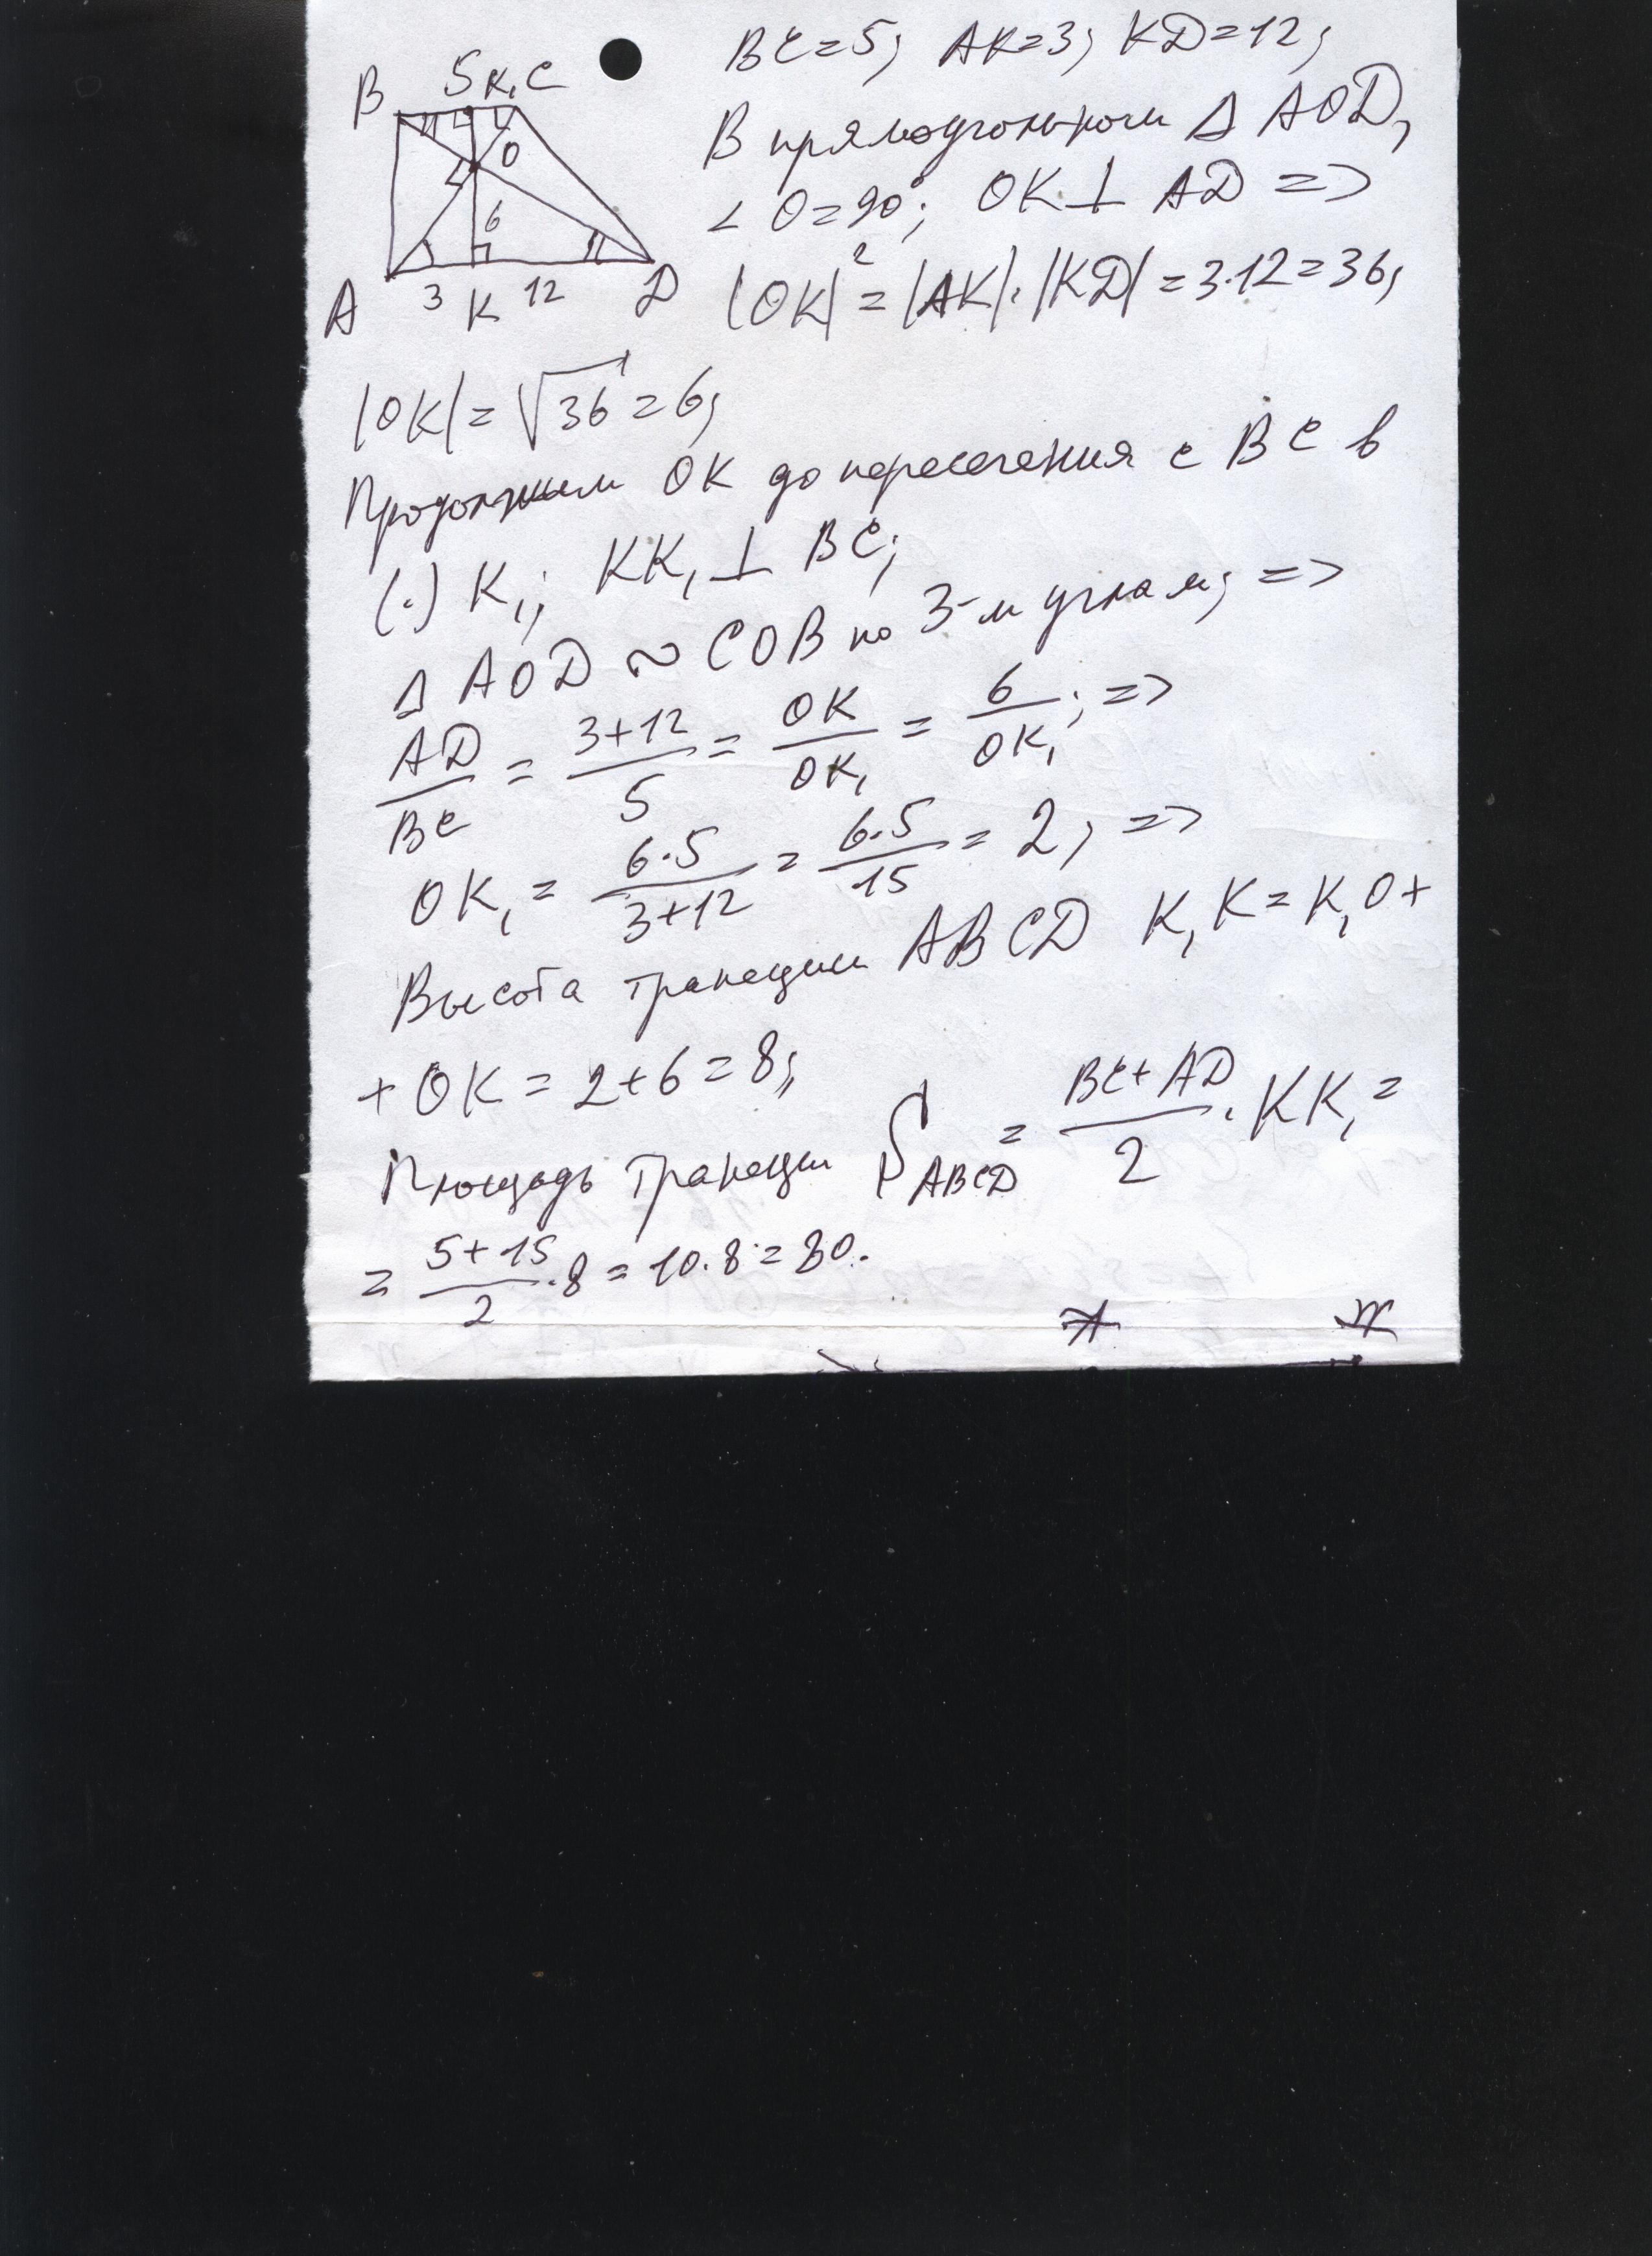 B 5 K₁ C
O
6
A 3 K 12 D
BC=5; AK=3; KD=12;
В прямоугольном Δ AOD,
∠O=90°; OK⊥AD =>
|OK|²=|AK|·|KD|=3·12=36;
|OK|=√36=6;
Продолжим OK до пересечения с BC в
(·) K₁; KK₁⊥BC;
Δ AOD ~ COB по 3-м углам; =>
AD/BC = (3+12)/5 = OK/OK₁ = 6/OK₁; =>
OK₁ = (6·5)/(3+12) = (6·5)/15 = 2; =>
Высота трапеции ABCD K₁K=K₁O+
+OK=2+6=8;
Площадь трапеции S_ABCD = (BC+AD)/2 · KK₁ =
= (5+15)/2 · 8 = 10·8=80.